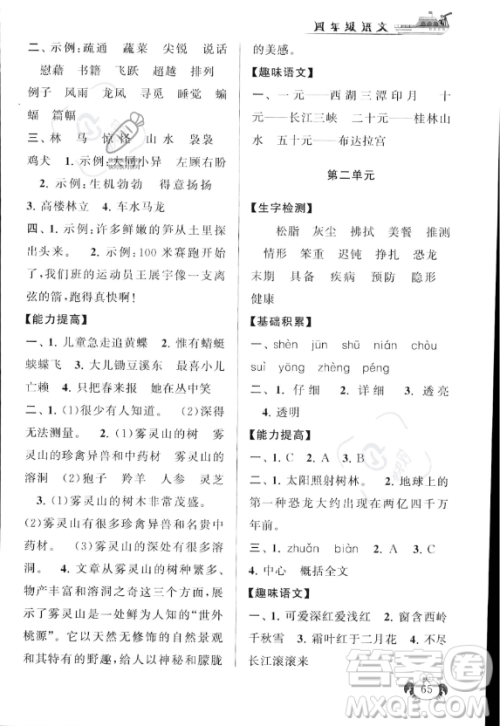 四年级语文
二、示例:疏通 通风 蔬菜 尖锐 说话
慰藉 书籍 飞跃 超越 排列
例子 风雨 龙凤 寻觅 睡觉 蝙
蝠 篇幅
三、林 马 惊 怪 山 水 袅袅
鸡犬 1. 示例:大同小异 左顾右盼
2. 示例:生机勃勃 得意扬扬
3. 高楼林立 4. 车水马龙
四、1. 示例:许多鲜嫩的笋从土里探
出头来。 2. 示例:100 米赛跑开始
了,我们班的运动员王展宇像一支离
弦的箭,跑得真快啊!
【能力提高】
一、1. 儿童急走追黄蝶 2. 唯有蜻蜓
蛱蝶飞 3. 大儿锄豆溪东 最喜小儿
亡赖 4. 日长篱落无人过
二、1. (1)很少有人知道。 (2)深得
无法测量。 2. 雾灵山的树木 雾灵
山的珍禽异兽和名贵中药材 雾灵山的
溶洞 3. (2)狍子 羚羊 人参 灵芝
4. (1)雾灵山的树木非常茂盛。
(2)雾灵山有很多珍禽异兽和名贵中
药材。 (3)雾灵山的深处有很多溶洞。
5. 概括了雾灵山的树木茂密、
物产丰富和溶洞之奇这三方面内容,
展示了雾灵山是一处鲜为人知的“世外
桃源”。它以无修饰的自然美,体现了
它特有的野趣,给人以神秘和朦胧
的美感。
【趣味语文】
一、一元——西湖三潭印月 十
元——长江三峡 二十元——桂林山
水 五十元——布达拉宫
第二单元
【生字检测】
松脂 灰尘 拂拭 美餐 推测
情形 笨重 迟钝 挣扎 恐龙
末期 具备 疾病 预防 隐形
健康
【基础积累】
一、shèn jùn shū nián chóu
suì zuō zhēng péng
二、1. 仔细 2. 详细 3. 透亮
4. 透明
【能力提高】
一、1. C 2. A 3. B
二、1. 太阳照射树林。 2. 地球上的
第一种恐龙大约出现在两亿四千万
年前。
三、1. zhuǎn biàn 2. A 3. C
4. 中心 概括全文
【趣味语文】
1. 可爱深红爱浅红 2. 窗含西岭
千秋雪 3. 霜叶红于二月花 4. 不尽
长江滚滚来
65
答案圈